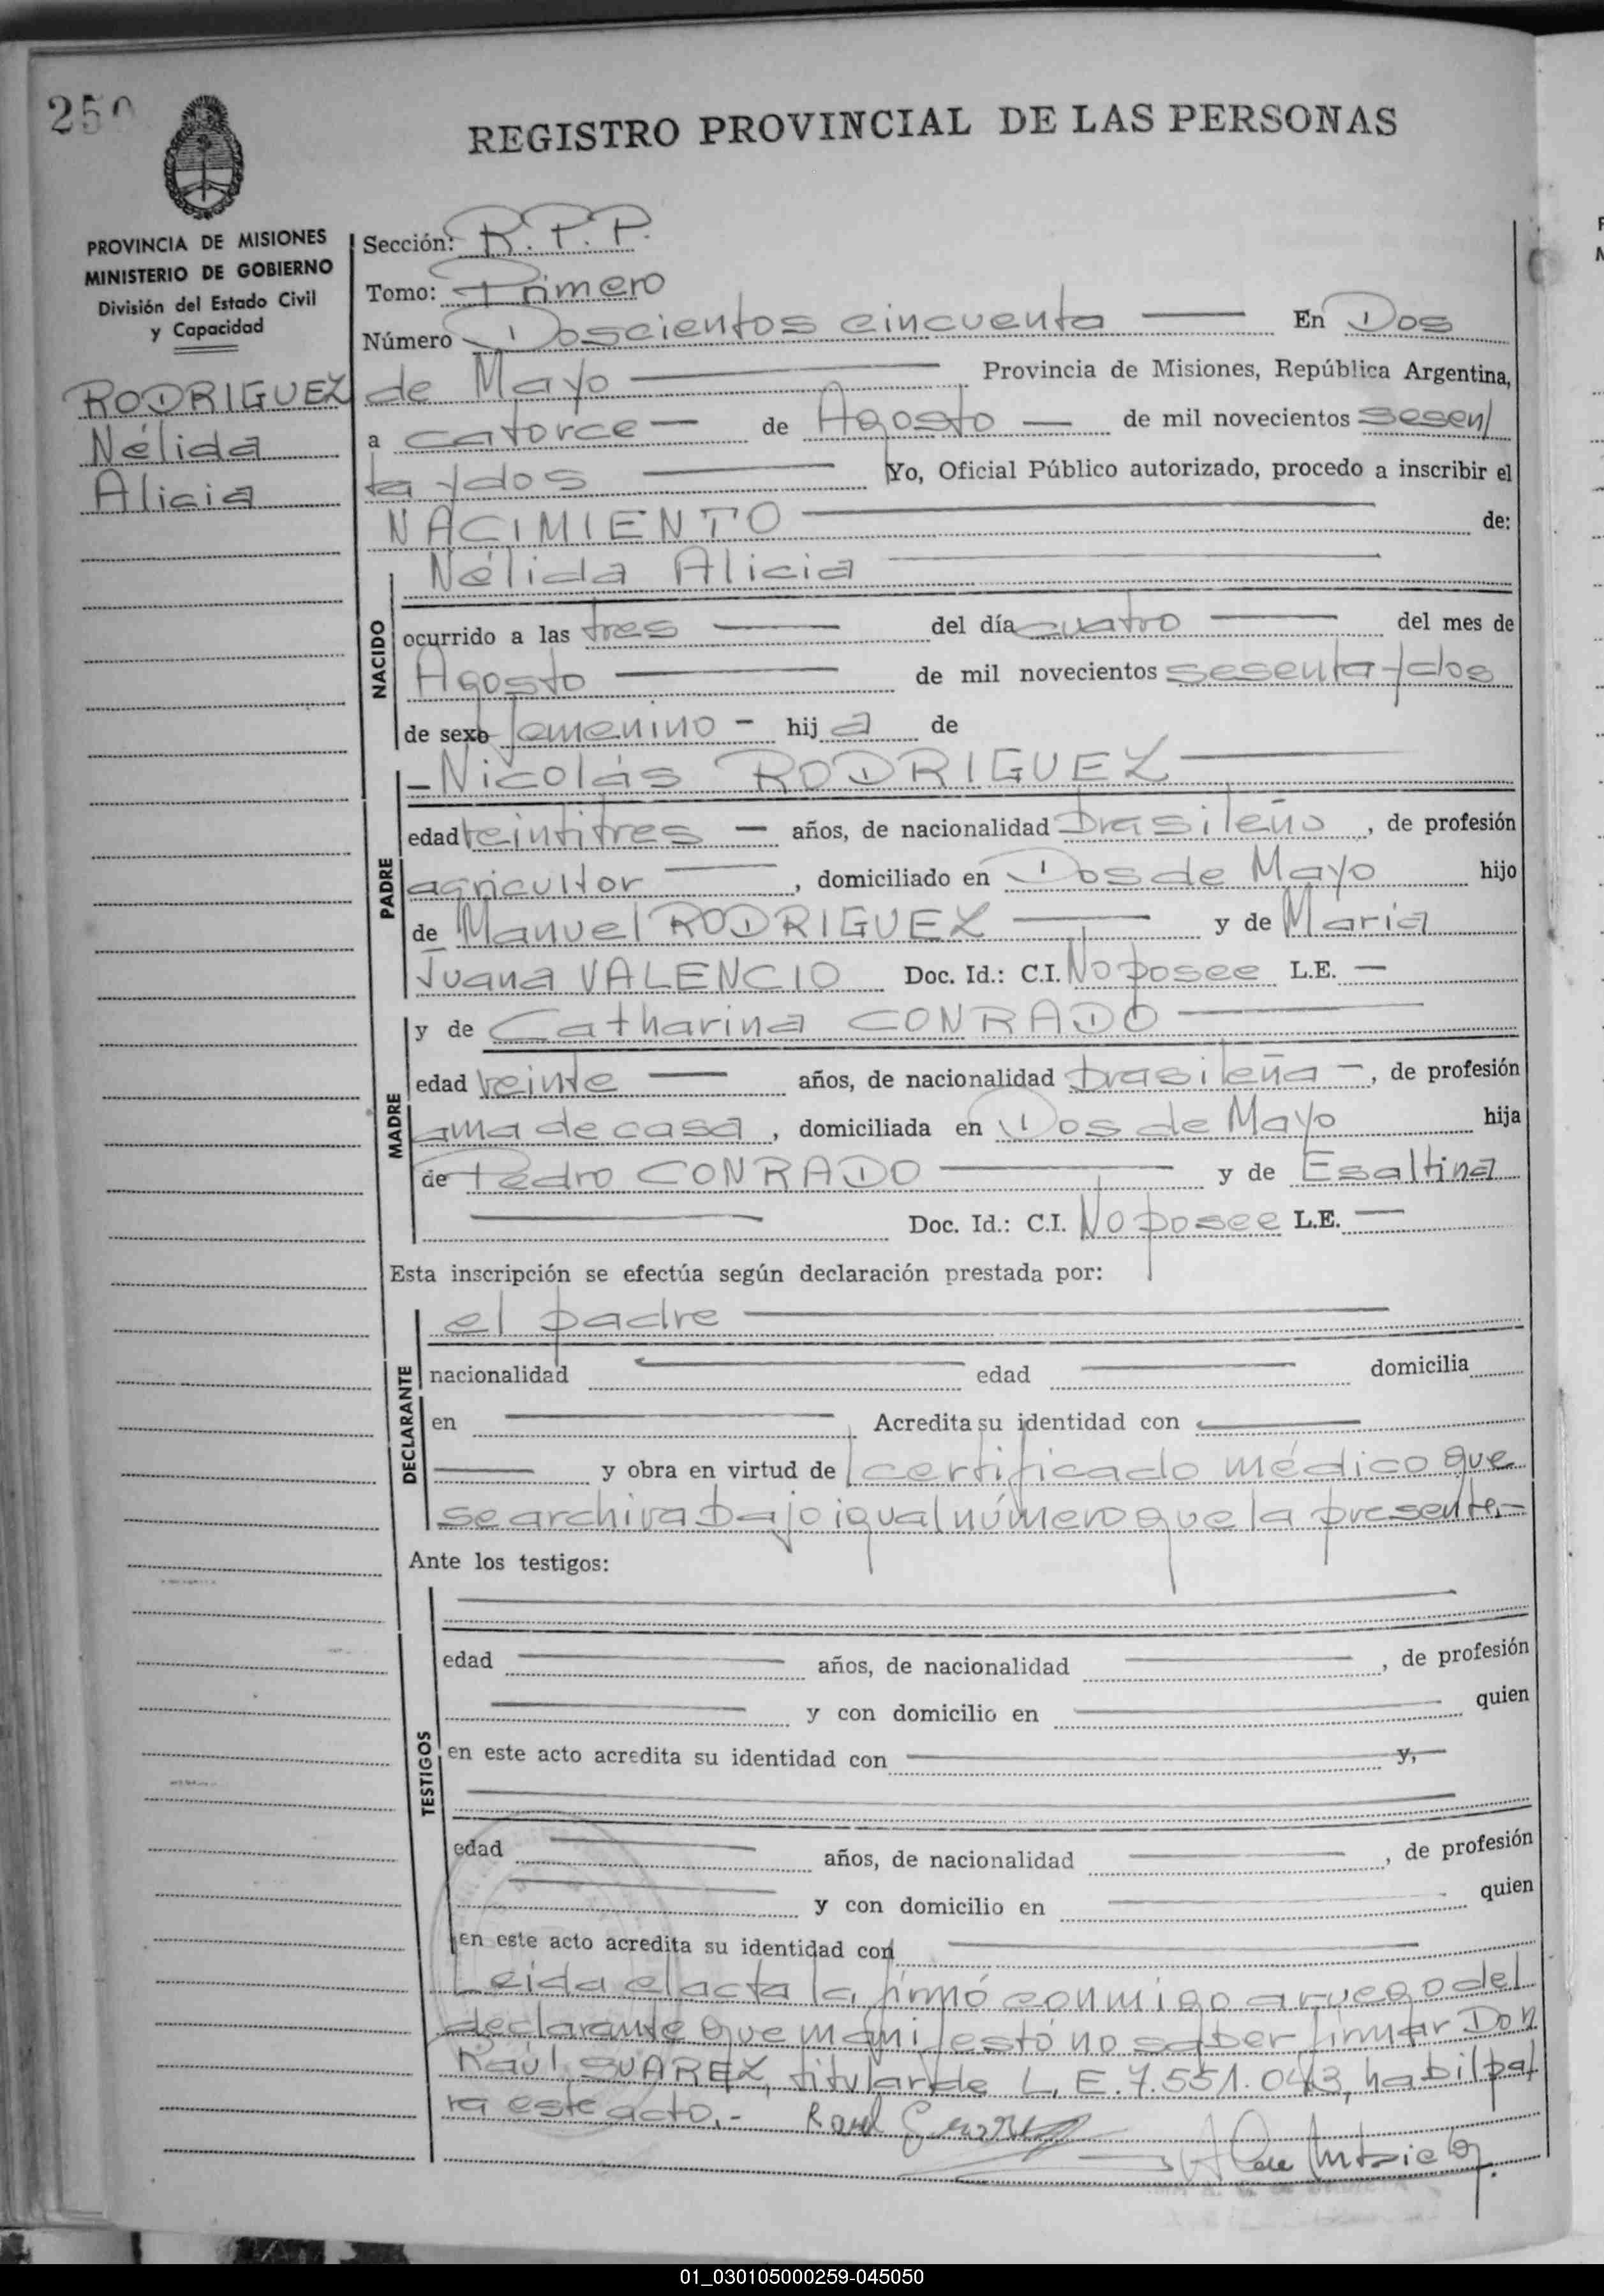 250
REGISTRO PROVINCIAL DE LAS PERSONAS
PROVINCIA DE MISIONES
MINISTERIO DE GOBIERNO
División del Estado Civil
y Capacidad
RODRIGUEZ
Nélida
Alicia
Sección: R.P.P.
Tomo: Primero
Número Doscientos cincuenta En Dos
de Mayo Provincia de Misiones, República Argentina,
a catorce de Agosto de mil novecientos sesen/
ta y dos Yo, Oficial Público autorizado, procedo a inscribir el
NACIMIENTO de:
Nélida Alicia
NACIDO
ocurrido a las tres del día cuatro del mes de
Agosto de mil novecientos sesenta y dos
de sexo femenino hij a de
PADRE
Nicolás RODRIGUEZ
edad veintitres años, de nacionalidad brasileño, de profesión
agricultor, domiciliado en Dos de Mayo hijo
de Manuel RODRIGUEZ y de Maria
Juana VALENCIO Doc. Id.: C.I. No posee L.E. —
MADRE
y de Catharina CONRADO
edad veinte años, de nacionalidad brasileña, de profesión
ama de casa, domiciliada en Dos de Mayo hija
de Pedro CONRADO y de Esaltina
Doc. Id.: C.I. No posee L.E. —
Esta inscripción se efectúa según declaración prestada por:
DECLARANTE
el padre
nacionalidad edad domicilia
en Acredita su identidad con
y obra en virtud de certificado médico que
se archiva bajo igual número que la presente.-
Ante los testigos:
TESTIGOS
edad años, de nacionalidad , de profesión
y con domicilio en quien
en este acto acredita su identidad con y,
edad años, de nacionalidad , de profesión
y con domicilio en quien
en este acto acredita su identidad con
Leida el acta la firmó conmigo a ruego del
declarante que manifestó no saber firmar Don
Raúl SUAREZ, titular de L.E. 7.551.043, habil pa/
ra este acto.- Raul Suarez
01_030105000259-045050